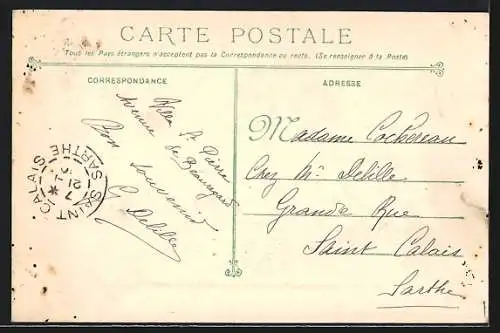 CARTE POSTALE
Tous les Pays étrangers n'acceptent pas la Correspondance au recto. (Se renseigner à la Poste)
CORRESPONDANCE
Villa St Pierre
Avenue de Beauregard
Bon souvenir
G Delille
SAINT CALAIS
SARTHE
7
21
ADRESSE
Madame Cockereau
Chez Mr Delille.
Grande Rue
Saint Calais
Sarthe